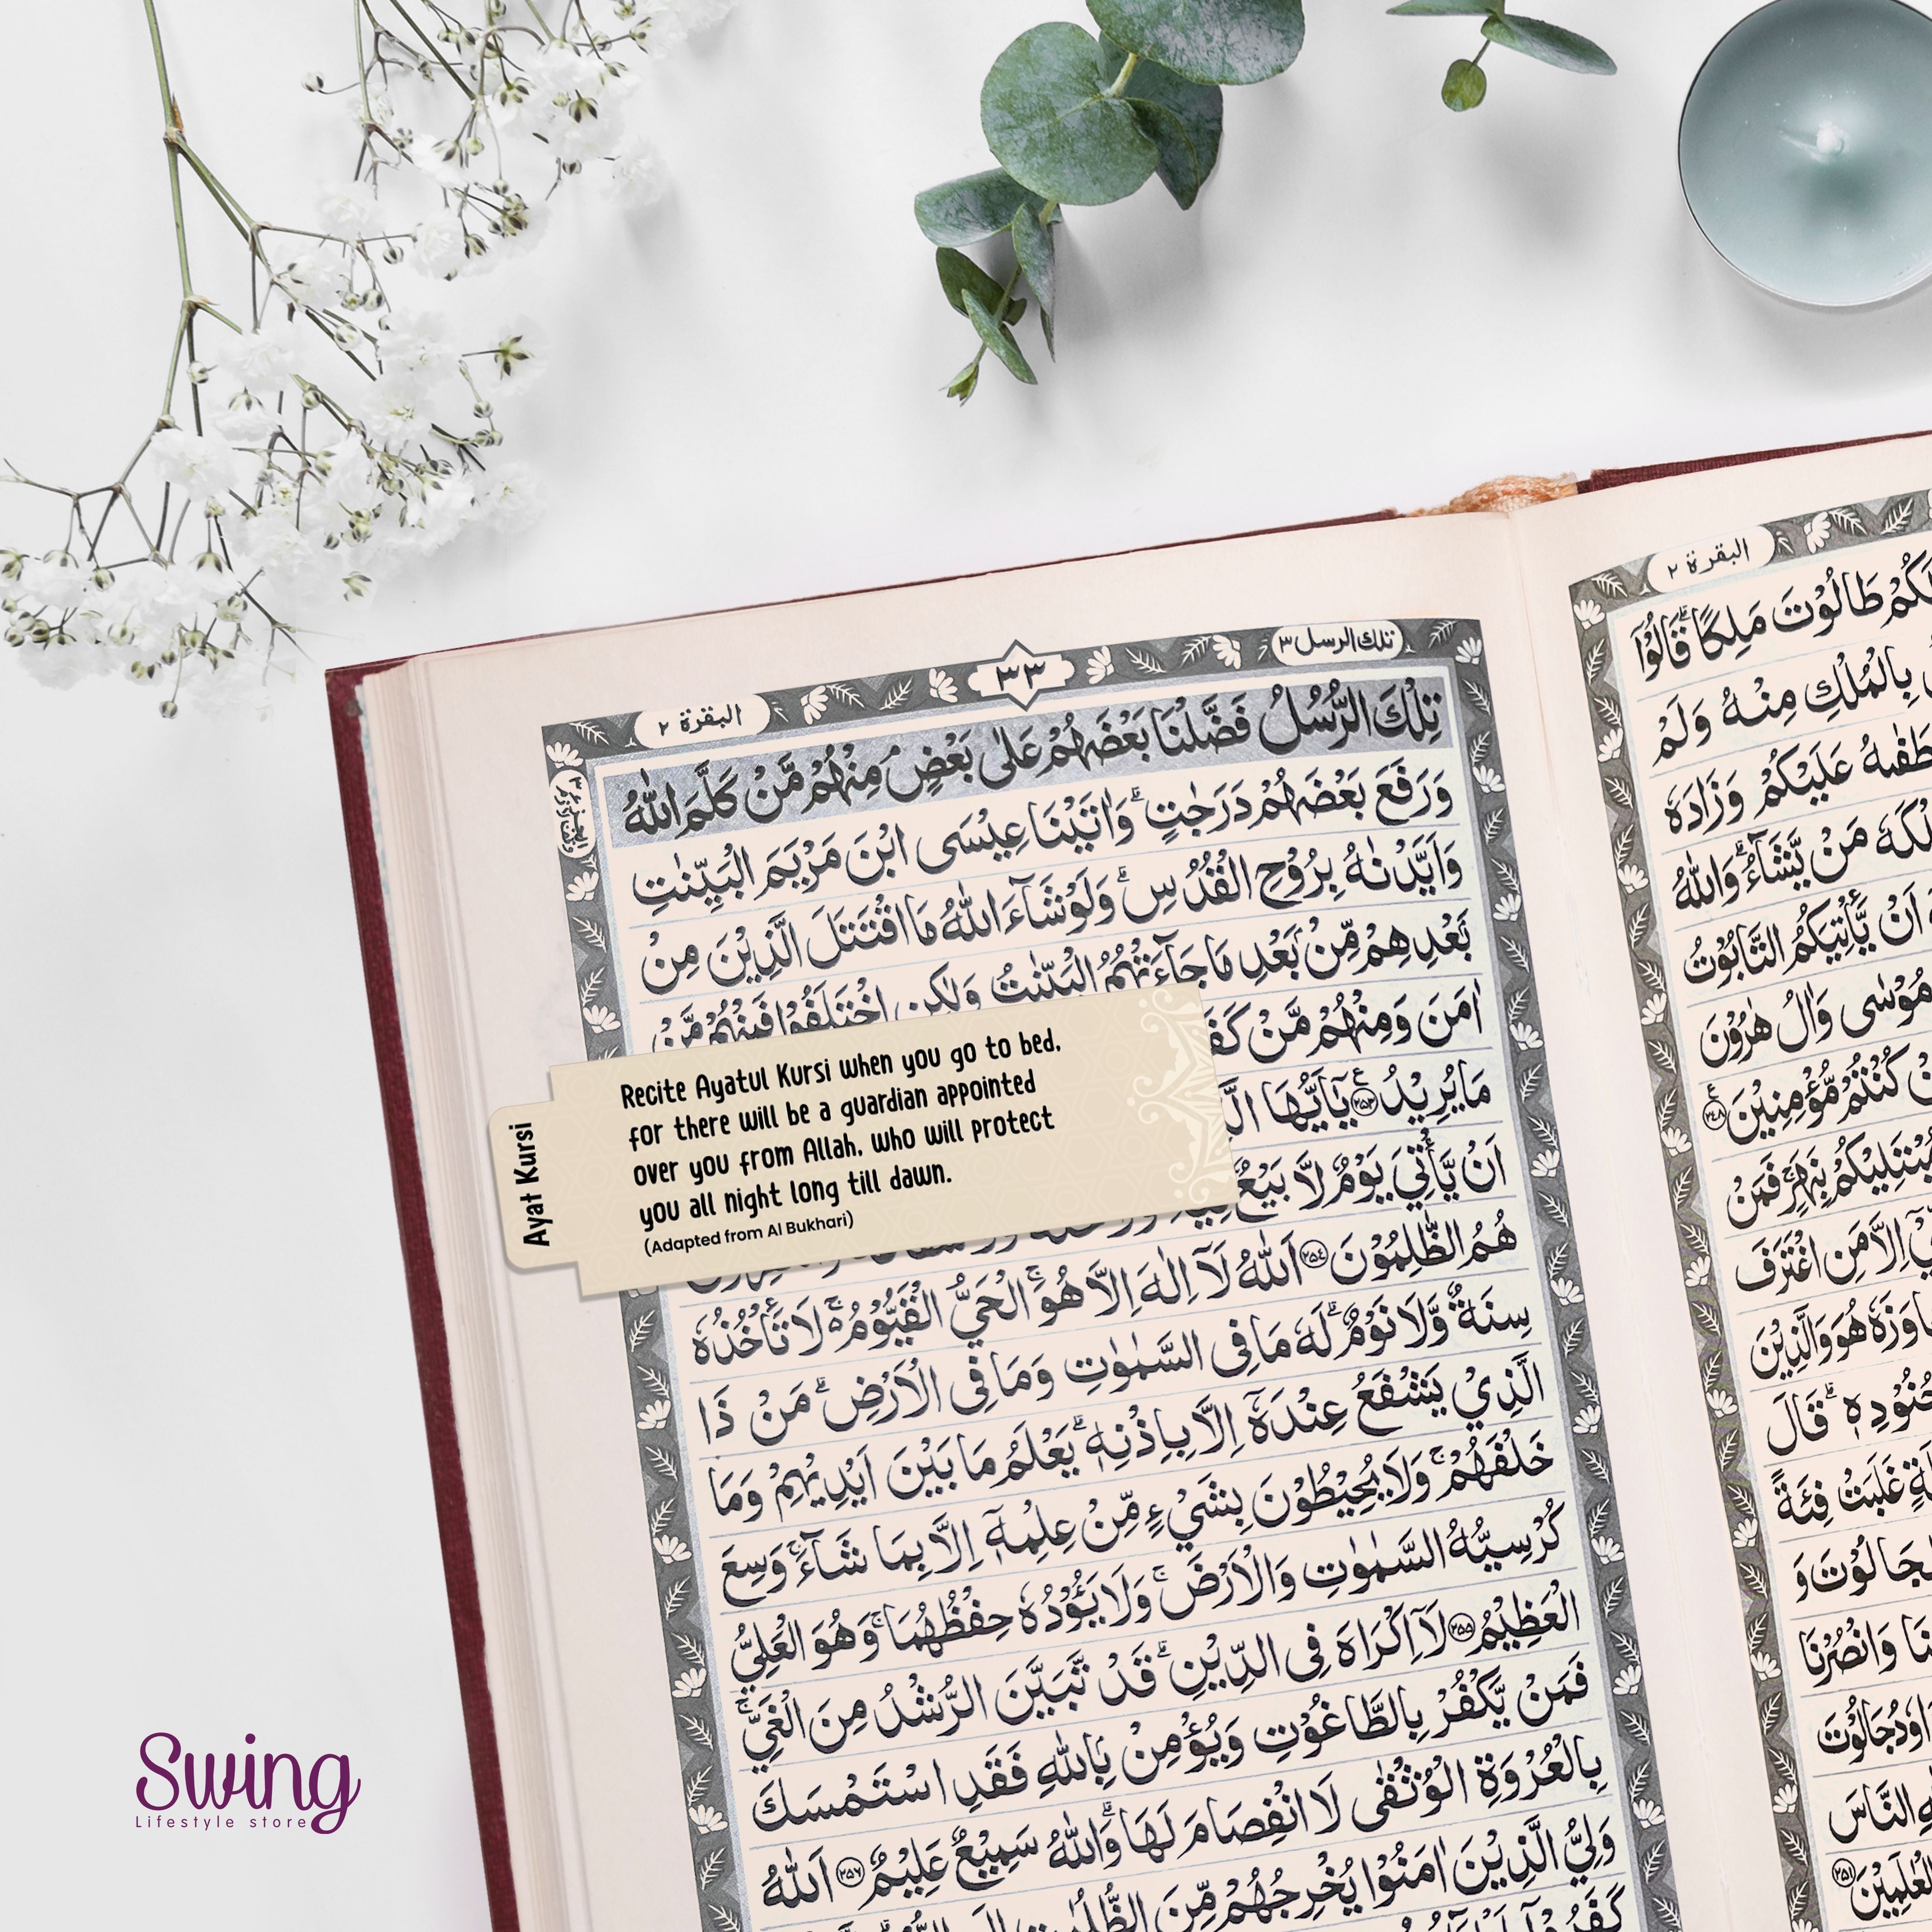 البقرة ٢
٣٣
تلك الرسل ٣
تِلْكَ الرُّسُلُ فَضَّلْنَا بَعْضَهُمْ عَلٰى بَعْضٍ مِنْهُمْ مَّنْ كَلَّمَ اللّٰهُ
وَرَفَعَ بَعْضَهُمْ دَرَجٰتٍ وَاٰتَيْنَا عِيْسَى ابْنَ مَرْيَمَ الْبَيِّنٰتِ
وَاَيَّدْنٰهُ بِرُوْحِ الْقُدُسِ وَلَوْ شَآءَ اللّٰهُ مَا اقْتَتَلَ الَّذِيْنَ مِنْ
بَعْدِهِمْ مِّنْ بَعْدِ مَا جَآءَتْهُمُ الْبَيِّنٰتُ وَلٰكِنِ اخْتَلَفُوْا فَمِنْهُمْ مَّنْ
اٰمَنَ وَمِنْهُمْ مَّنْ
مَا يُرِيْدُ ٢٥٣ يٰٓاَيُّهَا
اَنْ يَّاْتِيَ يَوْمٌ لَّا بَيْعٌ
هُمُ الظّٰلِمُوْنَ ٢٥٤ اَللّٰهُ لَآ اِلٰهَ اِلَّا هُوَ الْحَيُّ الْقَيُّوْمُ لَا تَاْخُذُهٗ
سِنَةٌ وَّلَا نَوْمٌ لَهٗ مَا فِى السَّمٰوٰتِ وَمَا فِى الْاَرْضِ مَنْ ذَا
الَّذِيْ يَشْفَعُ عِنْدَهٗٓ اِلَّا بِاِذْنِهٖ يَعْلَمُ مَا بَيْنَ اَيْدِيْهِمْ وَمَا
خَلْفَهُمْ وَلَا يُحِيْطُوْنَ بِشَيْءٍ مِّنْ عِلْمِهٖٓ اِلَّا بِمَا شَآءَ وَسِعَ
كُرْسِيُّهُ السَّمٰوٰتِ وَالْاَرْضَ وَلَا يَـُٔوْدُهٗ حِفْظُهُمَا وَهُوَ الْعَلِيُّ
الْعَظِيْمُ ٢٥٥ لَآ اِكْرَاهَ فِى الدِّيْنِ قَدْ تَّبَيَّنَ الرُّشْدُ مِنَ الْغَيِّ
فَمَنْ يَّكْفُرْ بِالطَّاغُوْتِ وَيُؤْمِنْ بِاللّٰهِ فَقَدِ اسْتَمْسَكَ
بِالْعُرْوَةِ الْوُثْقٰى لَا انْفِصَامَ لَهَا وَاللّٰهُ سَمِيْعٌ عَلِيْمٌ ٢٥٦ اَللّٰهُ
وَلِيُّ الَّذِيْنَ اٰمَنُوْا يُخْرِجُهُمْ مِّنَ
Ayat Kursi
Recite Ayatul Kursi when you go to bed,
for there will be a guardian appointed
over you from Allah, who will protect
you all night long till dawn.
(Adapted from Al Bukhari)
البقرة ٢
طَالُوْتَ مَلِكًا قَالُوْٓا
بِالْمُلْكِ مِنْهُ وَلَمْ
عَلَيْكُمْ وَزَادَهٗ
مَنْ يَّشَآءُ وَاللّٰهُ
اَنْ يَّاْتِيَكُمُ التَّابُوْتُ
مُوْسٰى وَاٰلُ هٰرُوْنَ
كُنْتُمْ مُّؤْمِنِيْنَ ٢٤٨
مُبْتَلِيْكُمْ بِنَهَرٍ فَمَنْ
اِلَّا مَنِ اغْتَرَفَ
هُوَ وَالَّذِيْنَ
قَالَ
غَلَبَتْ فِئَةً
وَ
وَانْصُرْنَا
جَالُوْتَ
النَّاسَ
٢٥١
Swing
Lifestyle store